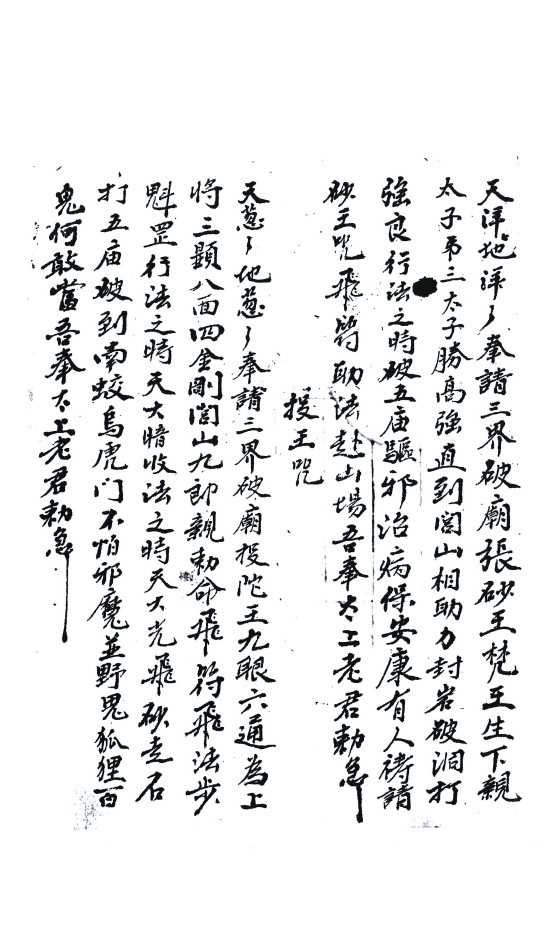 天洋地洋々奉請三界破廟張砂王梵王生下親
太子弟三太子勝高強直到閭山相助力封岩破洞打
強良行法之時破五庙驅邪治病保安康有人禱請
砂王咒飛符助法赴山塲吾奉太上老君勅急
投王咒
天葱々地葱々奉請三界破廟投陀王九眼六通為上
將三顯八面四金剛閭山九郎親勅命飛符飛法步
魁罡行法之時天大暗收法之時天大光飛砂走石
打五庙破到南蛟烏虎门不怕邪魔並野鬼狐狸百
鬼何敢當吾奉太上老君勅急